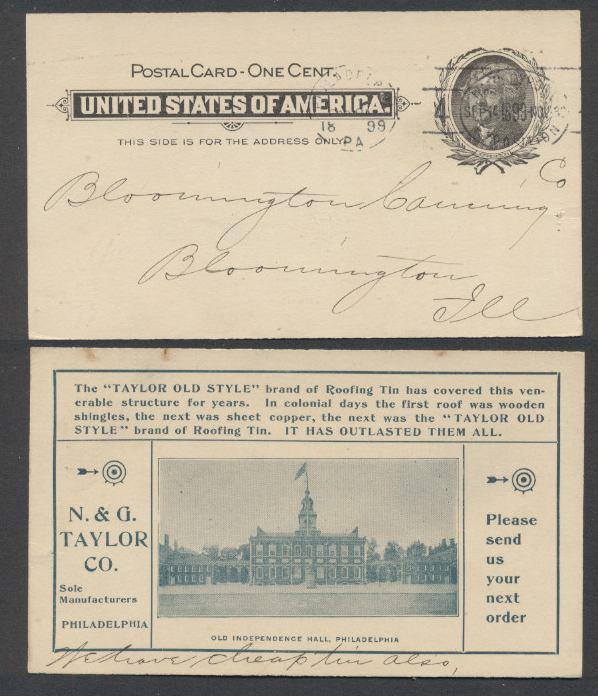 POSTAL CARD - ONE CENT.
UNITED STATES OF AMERICA.
THIS SIDE IS FOR THE ADDRESS ONLY.
18 99
PA
Bloomington Canning Co
Bloomington
Ill
The "TAYLOR OLD STYLE" brand of Roofing Tin has covered this ven-
erable structure for years. In colonial days the first roof was wooden
shingles, the next was sheet copper, the next was the "TAYLOR OLD
STYLE" brand of Roofing Tin. IT HAS OUTLASTED THEM ALL.
N. & G.
TAYLOR
CO.
Sole
Manufacturers
PHILADELPHIA
OLD INDEPENDENCE HALL, PHILADELPHIA
Please
send
us
your
next
order
We have cheap tin also,